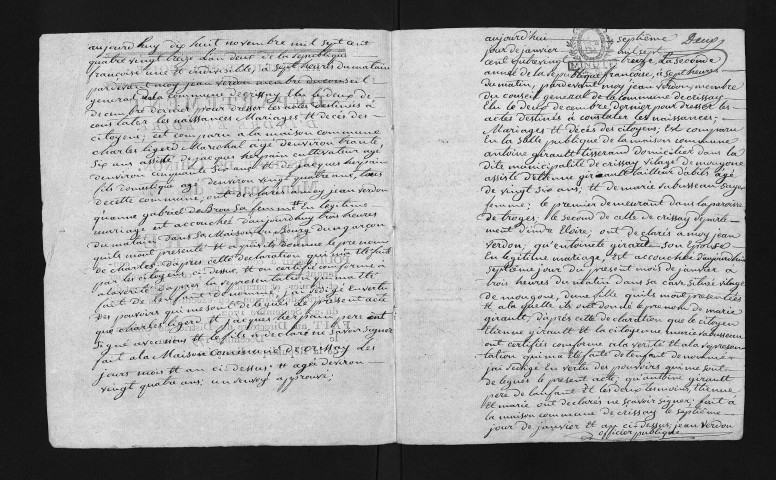 aujourdhuy dix huit novembre mil sept cent
quatre vingt treize lan deux de la republique
francoise une et indivisible, a sept heures du matin
pardevant moy jean verdon membre du conseil
general de la commune de crissay Elu le deux de
decembre dernier pour dresser les actes destinés a
constater les naissances Mariages et décès des
citoyens; est comparu a la maison commune
charles ligers Marechal agé denviron trante
six ans assisté de jacques herpain cultivateur agé
denviron cinquante six ans et de jacques herpain
fils domestique agé denviron vingt quatre ans, tous
de cette commune, ont declarés a moy jean verdon
qu'anne gabriel de Brou sa femme en legitime
mariage est accouchée d'aujourdhuy trois heures
du matin dans sa Maison au Bourg du garcon
quils mont presenté et a qui ils donne le prenom
de charles, d'apres cette declaration qui ma été faite
par les citoyens cy dessus et on certifié conforme a
la verité d'apres la representation qui ma été
fait de lenfant denommé, jai redigé en vertu
des pouvoirs qui me sont delegués le present acte
que charles ligers et jacques herpain pere ont
signé avec moy et le fils a declaré ne scavoir signer
fait a la Maison commune de crissay les
jours mois et an ci dessus. et agée denviron
vingt quatre ans; un renvoy approuvé;
Deux
aujourdhui septième
jour de janvier mil sept
cent quatre vingt treize, La seconde
année de la republique francoise, a sept heures
du matin, pardevant moy jean verdon, membre
du conseil general de la commune de crissay
Elu le deux decembre dernier pour dresser les
actes destinés a constater les naissances;
Mariages et décès des citoyens, Est comparu
En la salle publique de la maison commune
antoine girault tisserand domicilier dans la
dite municipalité de crissay vilage de mougone
assisté d'etienne girault tailleur d'abits agé
de vingt six ans et de marie sabusseau sage
femme; le premier demeurant dans la paroisse
de troges; le second de celle de crissay departe-
ment d'indre et loire; ont declarés a moy jean
verdon; qu'entoinete girault son epouse
En legitime mariage, est accouchée d'aujourdhui
septième jour du present mois de janvier a
trois heures du matin dans sa cave située vilage
de mougone, dune fille quils mont presentée
et a la quelle ils ont donné le prenom de marie
girault, d'après cette declaration que le citoyen
etienne girault et la citoyenne marie sabusseau
ont certifiés conforme a la verité et a la represen-
tation qui ma été faite de lenfant denommé
jai redigé En vertu des pouvoirs qui me sont
delegués le present acte; qu'antoine girault
pere de lenfant et les deux temoins, etienne
et marie ont declarés ne scavoir signer; fait a
la maison commune de crissay le septième
jour de janvier et an ci dessus; jean verdon
officier publique